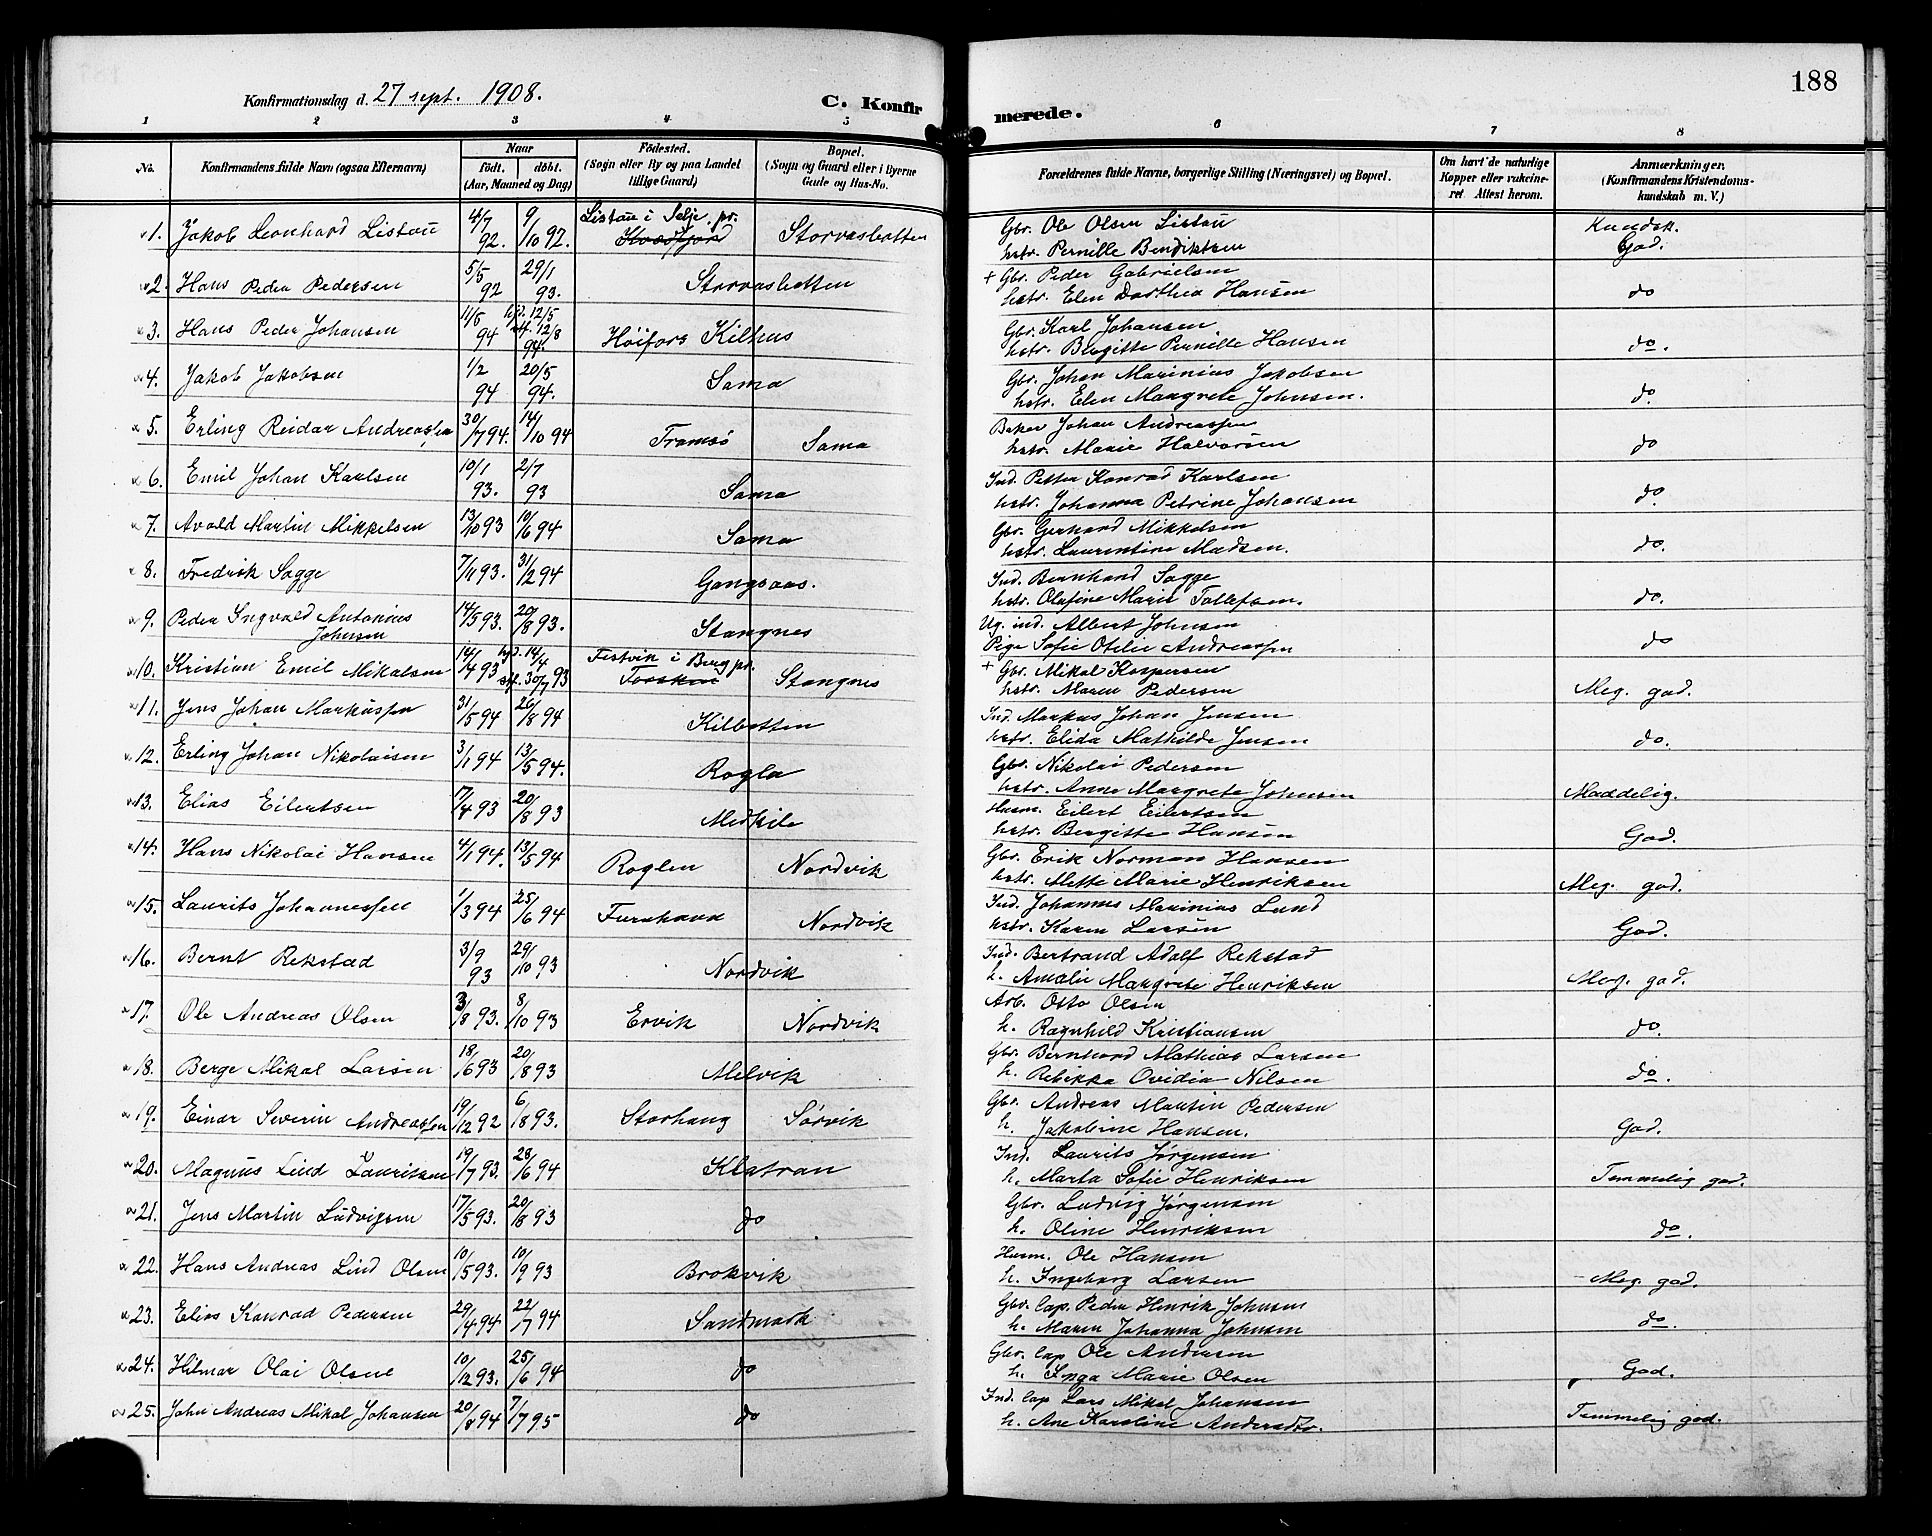 188
Konfirmationsdag d. 27 sept. 1908.
C. Konfirmerede.
1 2 3 4 5 6 7 8
No.
Konfirmandens fulde Navn (ogsaa Efternavn)
Naar
födt. döbt.
(Aar, Maaned og Dag)
Födested.
(Sogn eller By og paa Landet tillige Gaard)
Bopæl.
(Sogn og Gaard eller i Byerne Gade og Hus-No.
Forældrenes fulde Navne, borgerlige Stilling (Næringsvei) og Bopæl.
Om havt de naturlige Kopper eller vakcineret. Attest herom.
Anmærkninger.
(Konfirmandens Kristendomskundskab m. V.)
1. Jakob Leonhard Listau 4/7 92. 9/10 92. Listau i Selje. pr. Kvædfjord Storvasbotten Gbr. Ole Olsen Listau Kundsk. God.
hstr. Pernille Bendiktsen
2. Hans Peder Pedersen 5/5 92 29/1 93. Storvasbotten + Gbr. Peder Gabrielsen do
hstr. Elen Dorthea Hansen
3. Hans Peder Johansen 11/5 94 hjd. 12/5 stf. 12/8 94. Høifors Kilhus Gbr. Karl Johansen do.
hstr. Birgitte Pernille Hansen
4. Jakob Jakobsen 1/2 94 20/5 94. Sama Gbr. Johan Marinius Jakobsen do.
hstr. Elen Margrete Johnsen.
5. Erling Reidar Andreassen 30/7 94. 14/10 94 Tromsö Sama Baker Johan Andreassen do
hstr. Marie Halvorsen
6. Emil Johan Karlsen 10/1 93. 2/7 93 Sama Ind. Petter Konrad Karlsen do
hstr. Johanna Petrine Johansen
7. Avald Martin Mikkelsen 13/10 93 10/6 94 Sama Gbr. Gerhard Mikkelsen do.
hstr. Laurentine Madsen.
8. Fredrik Sagge 7/11 93. 31/12 94 Gangsaas. Ind. Bernhard Sagge do.
hstr. Olufine Marie Tollefsen.
9. Peder Ingvald Antonius Johnsen 14/5 93. 20/8 93. Stangnes Ug. ind. Albert Johnsen do
Pige Sofie Otilie Andreassen
10. Kristian Emil Mikalsen 14/4 93 hjd. 14/4 stf. 30/7 93 Festvik i Berg pr. Torsken Stangnes + Gbr. Mikal Kaspersen Meg. god.
hstr. Maren Pedersen
11. Jens Johan Markussen 31/5 94 26/8 94 Kilbotten Ind. Markus Johan Jensen do.
hstr. Elida Mathilde Jensen
12. Erling Johan Nikolaisen 3/1 94 13/5 94. Rogla Gbr. Nikolai Pedersen Maadelig.
hstr. Anne Margrete Johnsen
13. Elias Eilertsen 17/4 93 20/8 93 Medkile Husm. Eilert Eilertsen God.
hstr. Bergitte Hansen
14. Hans Nikolai Hansen 4/1 94. 13/5 94 Roglen Nordvik Gbr. Erik Norman Hansen Meg. god.
hstr. Mette Marie Henriksen
15. Laurits Johannessen 1/3 94 25/6 94 Furuhavn Nordvik Ind. Johannes Marinius Lund God.
hstr. Karen Larsen
16. Bernt Rekstad 3/9 93 29/10 93 Nordvik Ind. Bertrand Adolf Rekstad Meg. god.
h. Amalie Margrete Henriksen
17. Ole Andreas Olsen 3/8 93. 8/10 93 Ervik Nordvik Arb. Otto Olsen do.
h. Ragnhild Kristiansen
18. Berge Mikal Larsen 18/6 93 20/8 93 Melvik Gbr. Bernhard Mathias Larsen do.
h. Rebekka Ovidia Nilsen
19. Einar Severin Andreassen 19/12 92 6/8 93. Storhaug Sørvik Gbr. Andreas Martin Pedersen God.
h. Jakobine Hansen.
20. Magnus Lind Lauritsen 19/7 93. 28/6 94 Klatran Ind. Laurits Jørgensen Temmelig god.
h. Marta Sofie Henriksen
21. Jens Martin Ludvigsen 17/5 93. 20/8 93 do Gbr. Ludvig Jørgensen do.
h. Oline Henriksen
22. Hans Andreas Lind Olsen 10/5 93. 10/9 93 Brokvik Husm. Ole Hansen Meg. god.
h. Ingeborg Larsen
23. Elias Konrad Pedersen 29/4 94 22/7 94 Sandmark Gbr. Lap. Peder Henrik Johnsen do.
h. Maren Johanna Johnsen
24. Hilmar Olai Olsen 10/12 93. 25/6 94 do Gbr. lap Ole Andersen God.
h. Inga Marie Olsen
25. John Andreas Mikal Johansen 20/8 94 7/7 95 do Ind. lap Lars Mikal Johansen Temmelig god.
h. Ane Karoline Andersdtr.